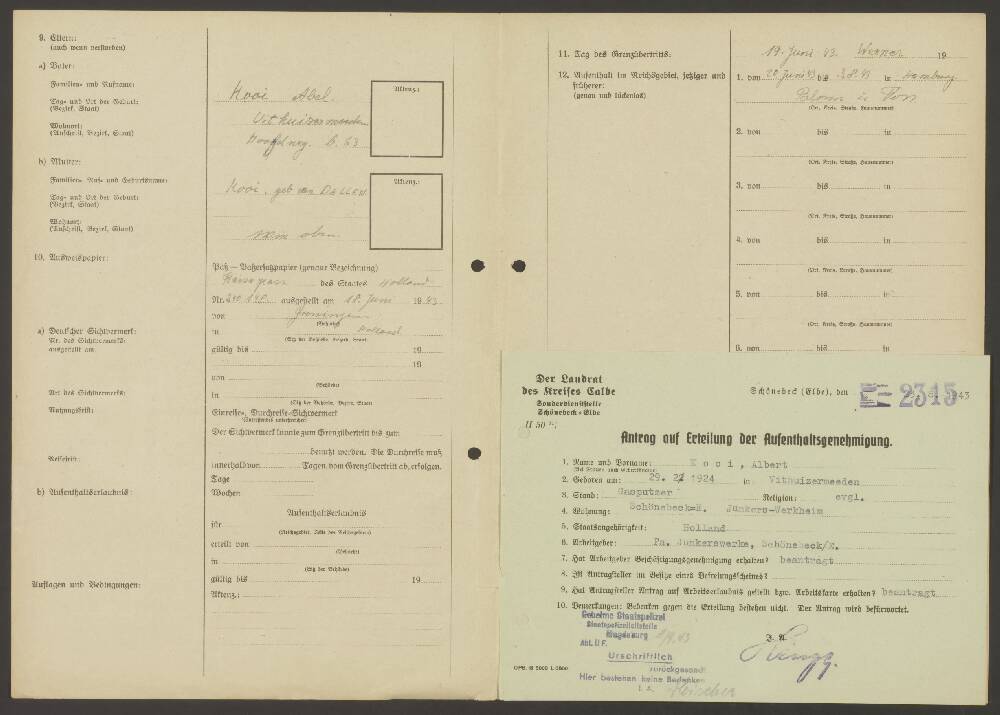 9. Eltern:
(auch wenn verstorben)
a) Vater:
Familien- und Rufname:
Kooi Abel.
Aktenz.:
Tag- und Ort der Geburt:
(Bezirk, Staat)
Uithuizermeeden
Wohnort:
(Anschrift, Bezirk, Staat)
Hoofdweg. B. 63
b) Mutter:
Familien- Ruf- und Geburtsname:
Kooi, geb van DELLEN
Aktenz.:
Tag- und Ort der Geburt:
(Bezirk, Staat)
Wohnort:
(Anschrift, Bezirk, Staat)
wie oben
10. Ausweispapier:
Paß — Paßersatzpapier (genaue Bezeichnung)
Reisepass des Staates Holland
Nr. ausgestellt am 18. Juni 1943
von Groningen
(Behörde)
in Holland
(Sitz der Behörde, Bezirk, Staat)
gültig bis 19
19
a) Deutscher Sichtvermerk:
Nr. des Sichtvermerks:
ausgestellt am
von
(Behörde)
Art des Sichtvermerks:
in
(Sitz der Behörde, Bezirk, Staat)
Nutzungsfrist:
Einreise-, Durchreise-Sichtvermerk
(Zutreffendes unterstreichen)
Der Sichtvermerk konnte zum Grenzübertritt bis zum
benutzt werden. Die Durchreise muß
Reisefrist:
innerhalb von Tagen vom Grenzübertritt ab, erfolgen.
Tage
b) Aufenthaltserlaubnis:
Wochen
Aufenthaltserlaubnis
für
(Reichsgebiet, Teile des Reichsgebietes)
erteilt von
(Behörde)
in
(Sitz der Behörde)
Auflagen und Bedingungen:
gültig bis 19
Aktenz.:
11. Tag des Grenzübertritts:
19. Juni 43. 19
12. Aufenthalt im Reichsgebiet, jetziger und
früherer:
(genau und lückenlos)
1. von 20 Juni 43 bis 3.8.43 in Hamburg
Blohm u Voss
(Ort, Kreis, Straße, Hausnummer)
2. von bis in
(Ort, Kreis, Straße, Hausnummer)
3. von bis in
(Ort, Kreis, Straße, Hausnummer)
4. von bis in
(Ort, Kreis, Straße, Hausnummer)
5. von bis in
(Ort, Kreis, Straße, Hausnummer)
6. von bis in
Der Landrat
des Kreises Calbe
Sonderdienststelle
Schönebeck-Elbe
II 50
Schönebeck (Elbe), den 43
E- 2315
Antrag auf Erteilung der Aufenthaltsgenehmigung.
1. Name und Vorname: Kooi, Albert
(Bei Frauen auch Geburtsname)
2. Geboren am: 29. 1924 in Vithuizermeeden
3. Stand: Gasputzer Religion: evgl.
4. Wohnung: Schönebeck-E. Junkers-Werkheim
5. Staatsangehörigkeit: Holland
6. Arbeitgeber: Fa. Junkerswerke, Schönebeck/E.
7. Hat Arbeitgeber Beschäftigungsgenehmigung erhalten? beantragt
8. Ist Antragsteller im Besitze eines Befreiungsscheines?
9. Hat Antragsteller Antrag auf Arbeitserlaubnis gestellt bzw. Arbeitskarte erhalten? beantragt
10. Bemerkungen: Bedenken gegen die Erteilung bestehen nicht. Der Antrag wird befürwortet.
Geheime Staatspolizei
Staatspolizeileitstelle
Magdeburg
Abt. II F.
Urschriftlich
zurückgesandt
Hier bestehen keine Bedenken
I. A.
J. A.